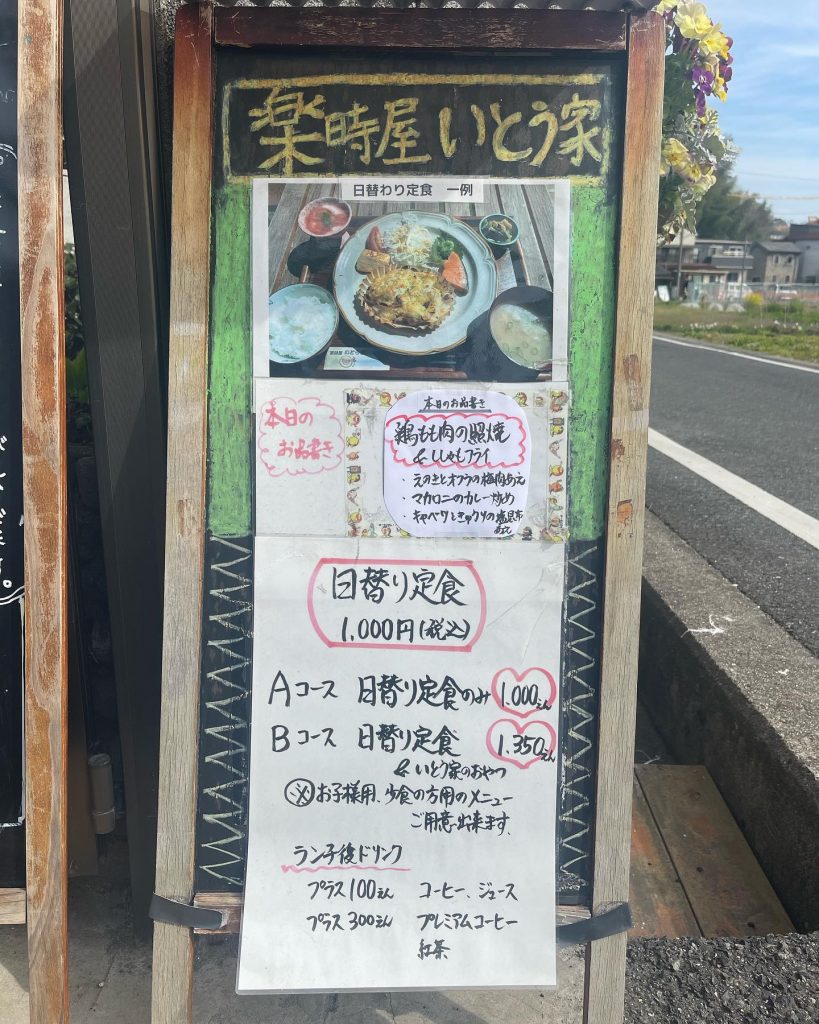 楽時屋 いとう家
日替わり定食 一例
本日の
お品書き
本日のお品書き
鶏もも肉の照焼
& ししゃもフライ
・えのきとオクラの梅肉あえ
・マカロニのカレー炒め
・キャベツときゅうりの塩昆布
あえ
日替り定食
1.000円(税込)
Aコース 日替り定食のみ 1.000えん
Bコース 日替り定食 1.350えん
& いとう家のおやつ
お子様用、少食の方用のメニュー
ご用意出来ます、
ランチ後ドリンク
プラス100えん コーヒー、ジュース
プラス300えん プレミアムコーヒー
紅茶